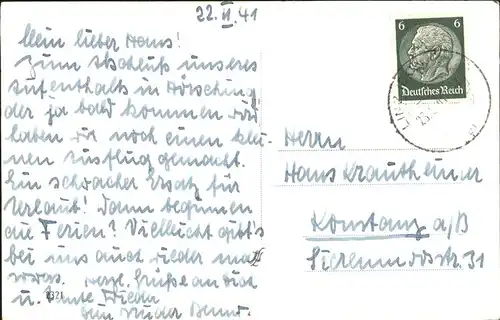 22. VI. 41
Mein lieber Hans!
Zum Abschluß unseres
Aufenthalts in Hörsching
der ja bald kommen wird
haben wir noch einen klei-
nen Ausflug gemacht.
Ein schwacher Ersatz für
Urlaub! Wann beginnen
die Ferien? Vielleicht gibt's
bei uns auch wieder mal
sowas. Herzl. Grüße an Dich
u. Tante Frieda
Dein Bruder Bernd.
7321
6 6
Deutsches Reich
LINZ
Herrn
Hans Krautheimer
Konstanz a/B
31